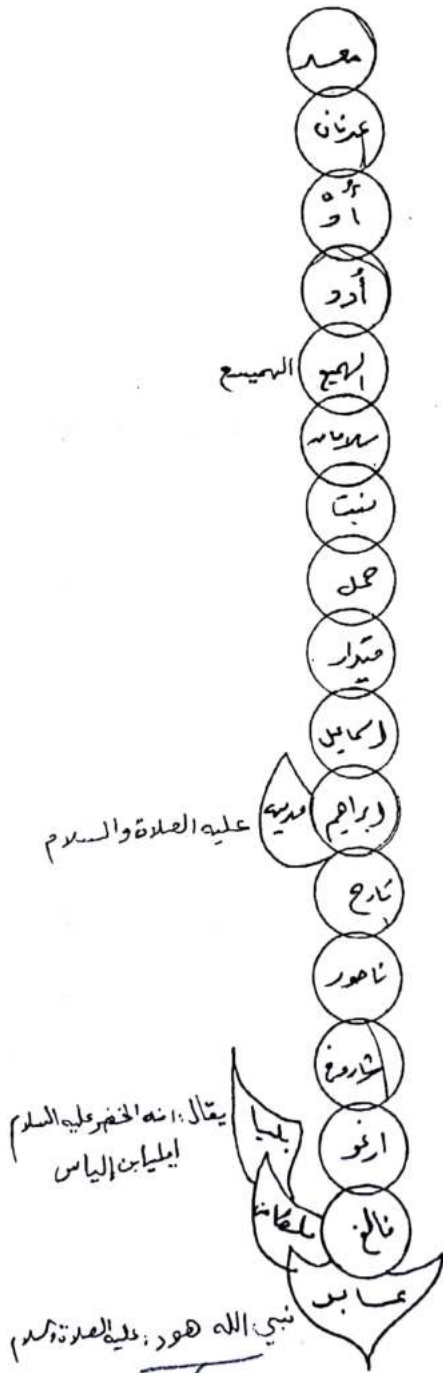 معد
عدنان
أدّ
أدد
الهميع الهميسع
سلامان
نبت
حمل
قيدار
اسماعيل
ابراهيم مدين عليه الصلاة والسلام
تارح
ناحور
شاروخ
ارغو
بليا يقال: انه الخضر عليه السلام
ايليا ابن إلياس
فالغ ملكان
عابر
نبي الله هود: عليه الصلاة والسلام